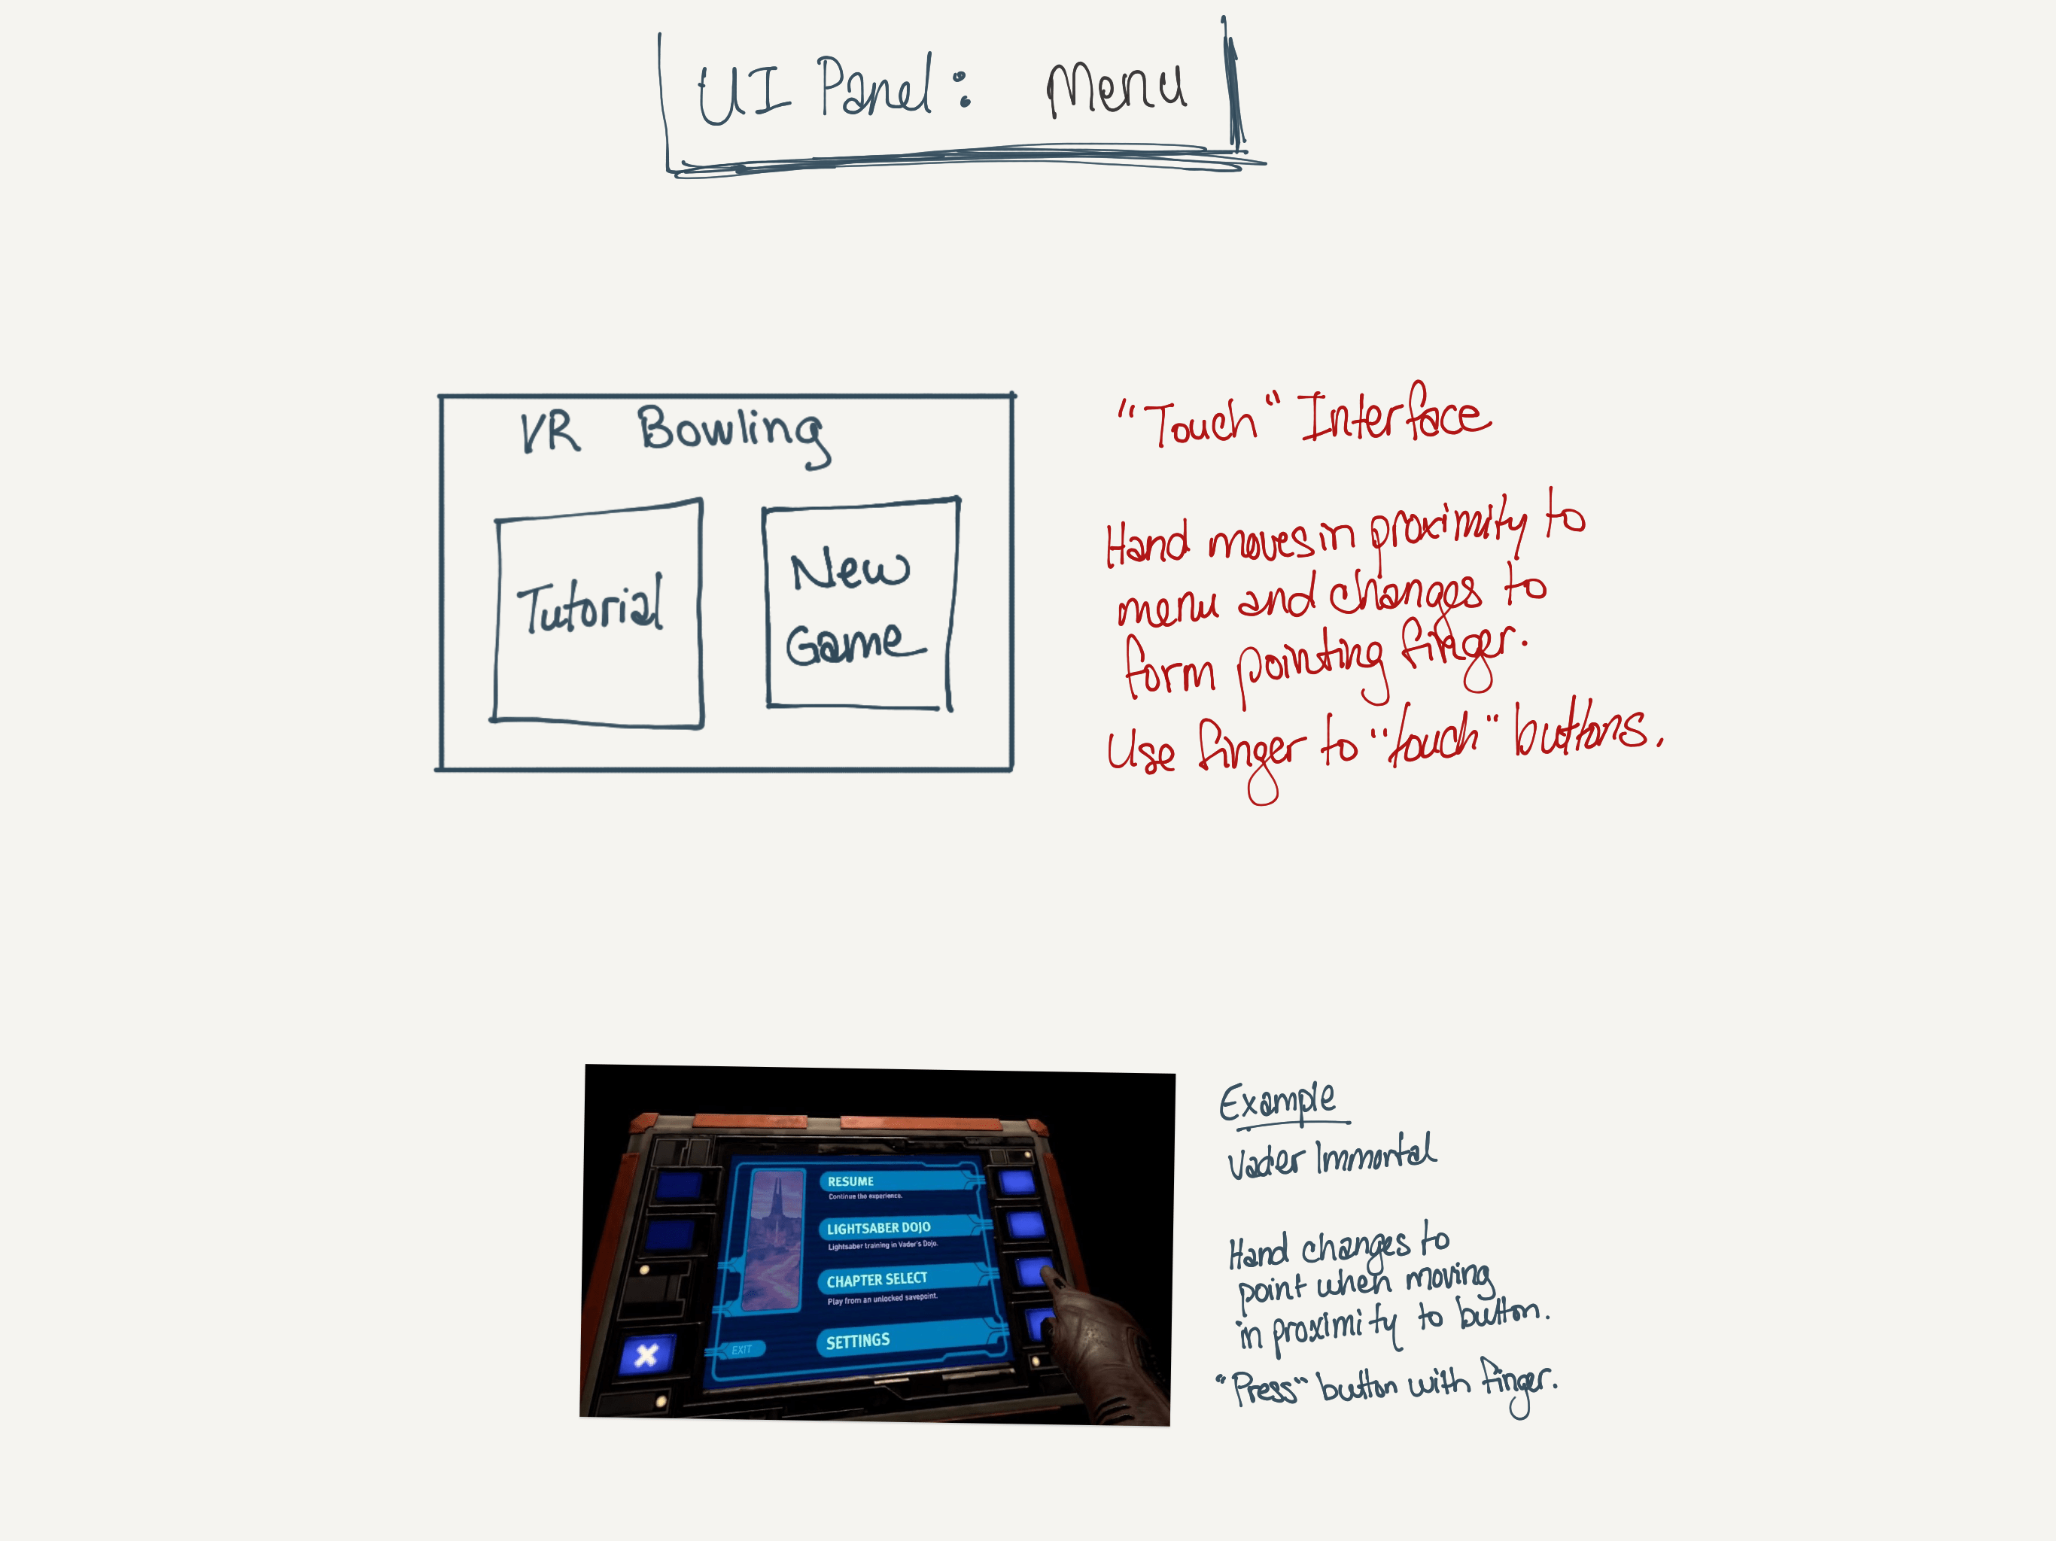 UI Panel: Menu
VR Bowling
Tutorial
New
Game
"Touch" Interface
Hand moves in proximity to
menu and changes to
form pointing finger.
Use finger to "touch" buttons.
RESUME
Continue the experience.
LIGHTSABER DOJO
Lightsaber training in Vader's Dojo.
CHAPTER SELECT
Play from an unlocked savepoint.
SETTINGS
EXIT
Example
Vader Immortal
Hand changes to
point when moving
in proximity to button.
"Press" button with finger.